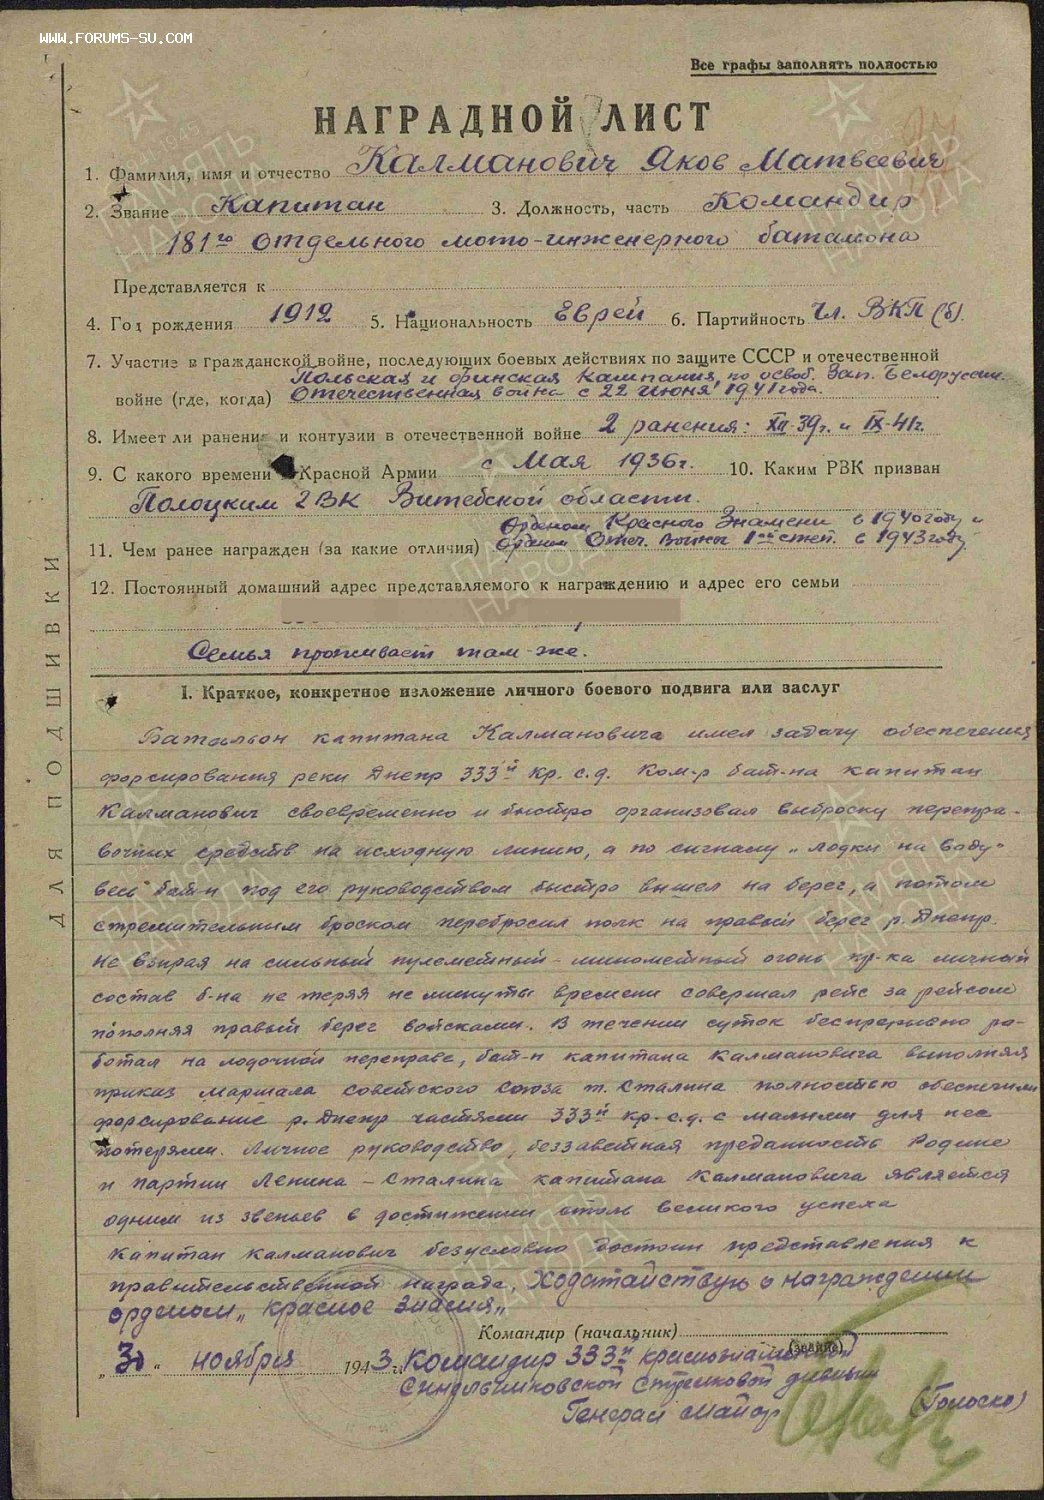 WWW.FORUMS-SU.COM
Все графы заполнять полностью
НАГРАДНОЙ ЛИСТ
1. Фамилия, имя и отчество Калманович Яков Матвеевич
2. Звание Капитан 3. Должность, часть Командир
181го отдельного мото-инженерного батальона
Представляется к
4. Год рождения 1912 5. Национальность Еврей 6. Партийность Чл. ВКП(б).
7. Участие в гражданской войне, последующих боевых действиях по защите СССР и отечественной
Польская и финская кампания, по освоб. Зап. Белоруссии.
войне (где, когда) Отечественная война с 22 июня 1941 года.
8. Имеет ли ранения и контузии в отечественной войне 2 ранения: XII-39г. и IX-41г.
9. С какого времени в Красной Армии с Мая 1936г. 10. Каким РВК призван
Полоцким РВК Витебской области.
Орденом Красного Знамени в 1940 году и
11. Чем ранее награжден (за какие отличия) Орденом Отеч. Войны степ. в 1943 году
12. Постоянный домашний адрес представляемого к награждению и адрес его семьи
Семья проживает там-же.
I. Краткое, конкретное изложение личного боевого подвига или заслуг
Батальон капитана Калмановича имел задачу обеспечения
форсирования реки Днепр 333й кр. с.д. Ком-р бат-на капитан
Калманович своевременно и быстро организовал выброску перепра-
вочных средств на исходную линию, а по сигналу „лодки на воду"
весь бат-н под его руководством быстро вышел на берег, а потом
стремительным броском перебросил полк на правый берег р. Днепр.
Не взирая на сильный пулеметный-минометный огонь пр-ка личный
состав б-на не теряя не минуты времени совершал рейс за рейсом
пополняя правый берег войсками. В течении суток беспрерывно ра-
ботал на лодочной переправе, бат-н капитана Калмановича выполняя
приказ Маршала советского союза т. Сталина полностью обеспечили
форсирование р. Днепр частями 333й кр. с.д. с малыми для нее
потерями. Личное руководство, беззаветная преданность Родине
и партии Ленина-Сталина капитана Калмановича является
одним из звеньев в достижении столь великого успеха
Капитан Калманович безусловно достоин представления к
правительственной награде, Ходатайствую о награждении
орденом „Красное Знамя"
Командир (начальник)
(звание)
„30" ноября 1943 г. Командир 333й краснознаменной
Синельниковской стрелковой дивизии
Генерал майор (Голоско)
ДЛЯ ПОДШИВКИ
ПАМЯТЬ НАРОДА